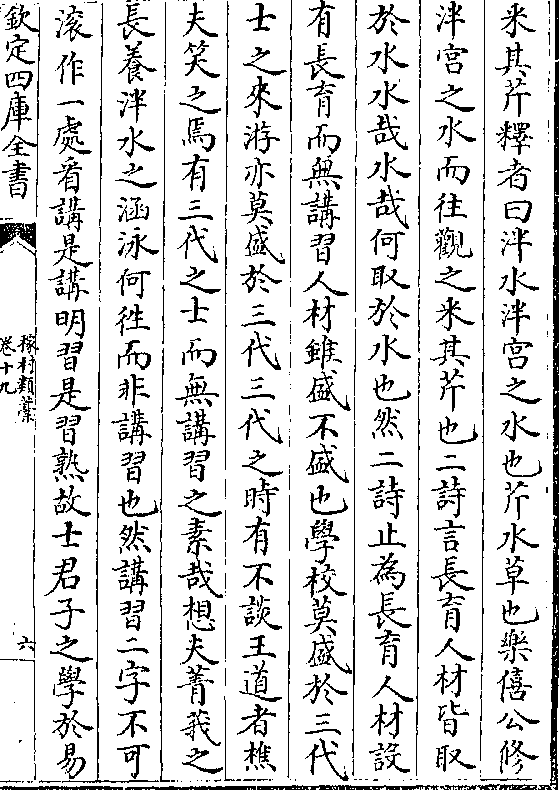 采其芹釋者曰泮水泮宮之水也芹水草也樂僖公修
泮宮之水而往觀之采其芹也二詩言長育人材皆取
於水水哉水哉何取於水也然二詩止為長育人材設
有長育而無講習人材雖盛不盛也學校莫盛於三代
士之來游亦莫盛於三代三代之時有不談王道者樵
夫笑之焉有三代之士而無講習之素哉想夫菁莪之
長養泮水之涵泳何徃而非講習也然講習二字不可
滚作一處看講是講明習是習熟故士君子之學於易
欽定四庫全書
稼村類藁
卷十九
六